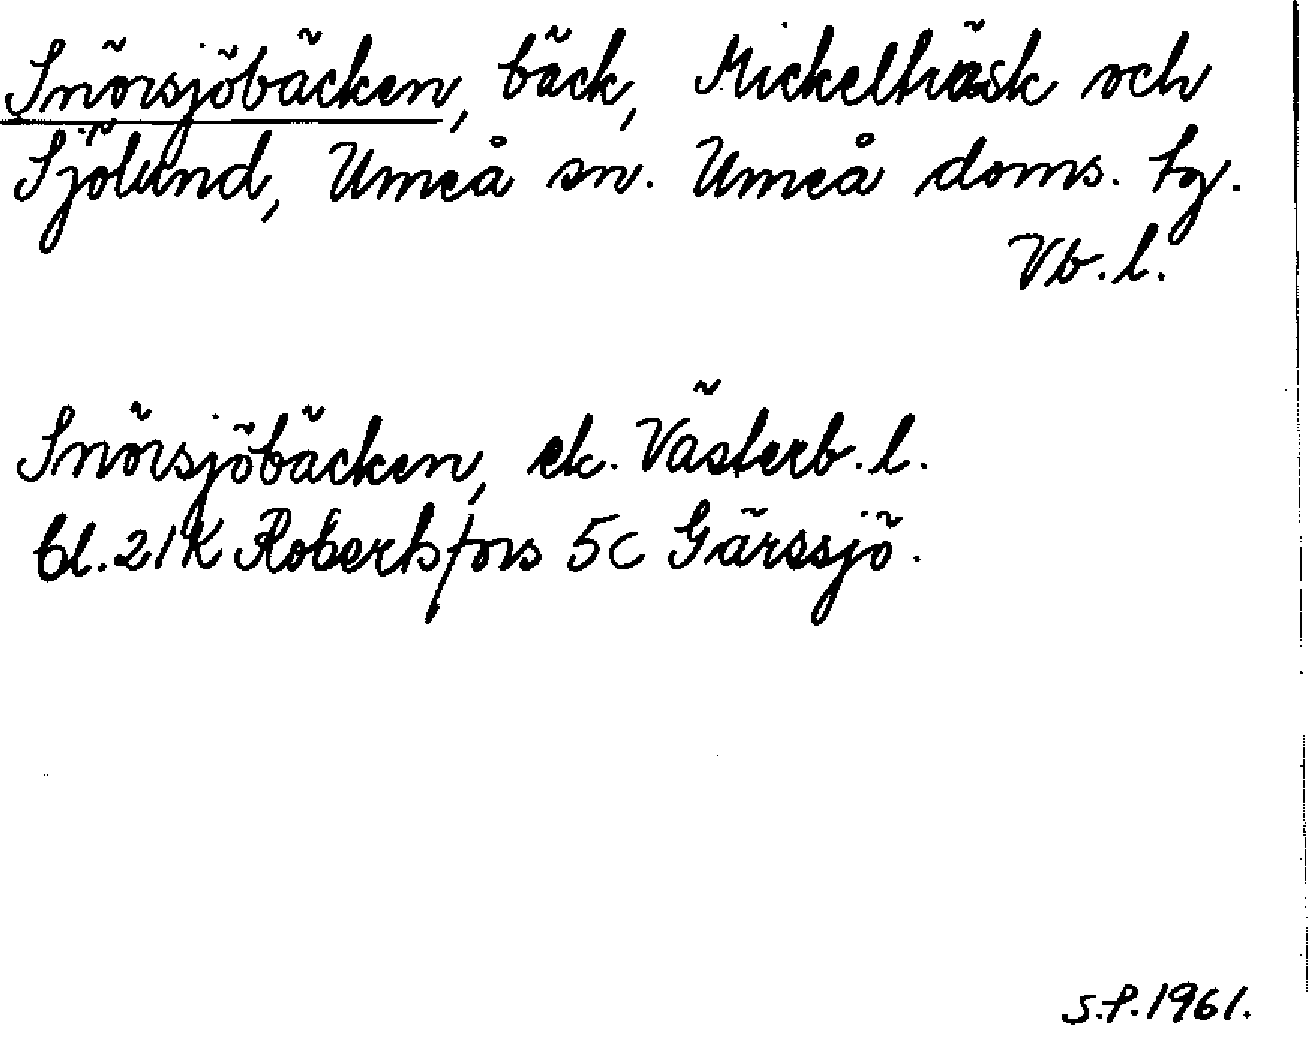 Snörsjöbäcken, bäck, Mickelträsk och
Sjölund, Umeå sn. Umeå doms. tg.
Vb.l.
Snörsjöbäcken, ek. Västerb.l.
bl.21K Robertsfors 5c Gärssjö.
S.P.1961.